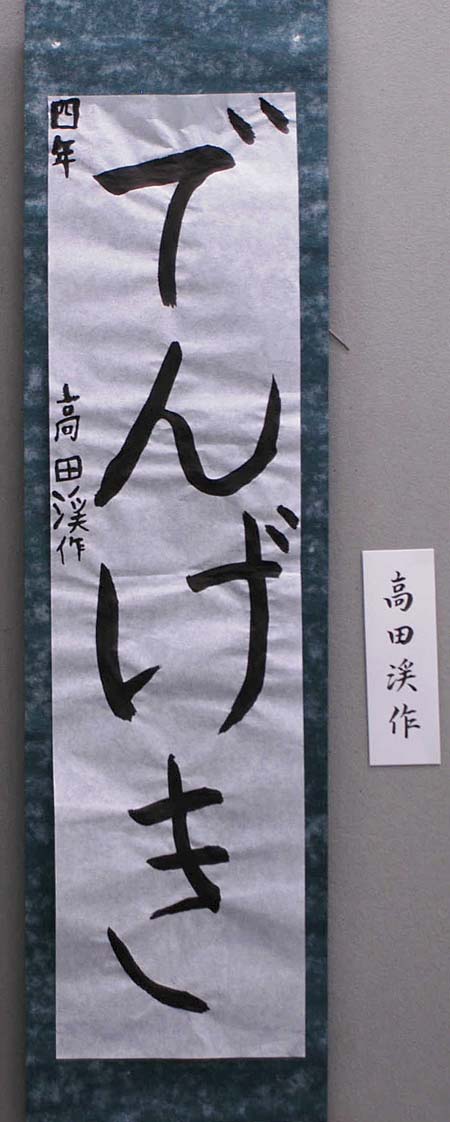 でんげき
四年
高田渓作
高田渓作